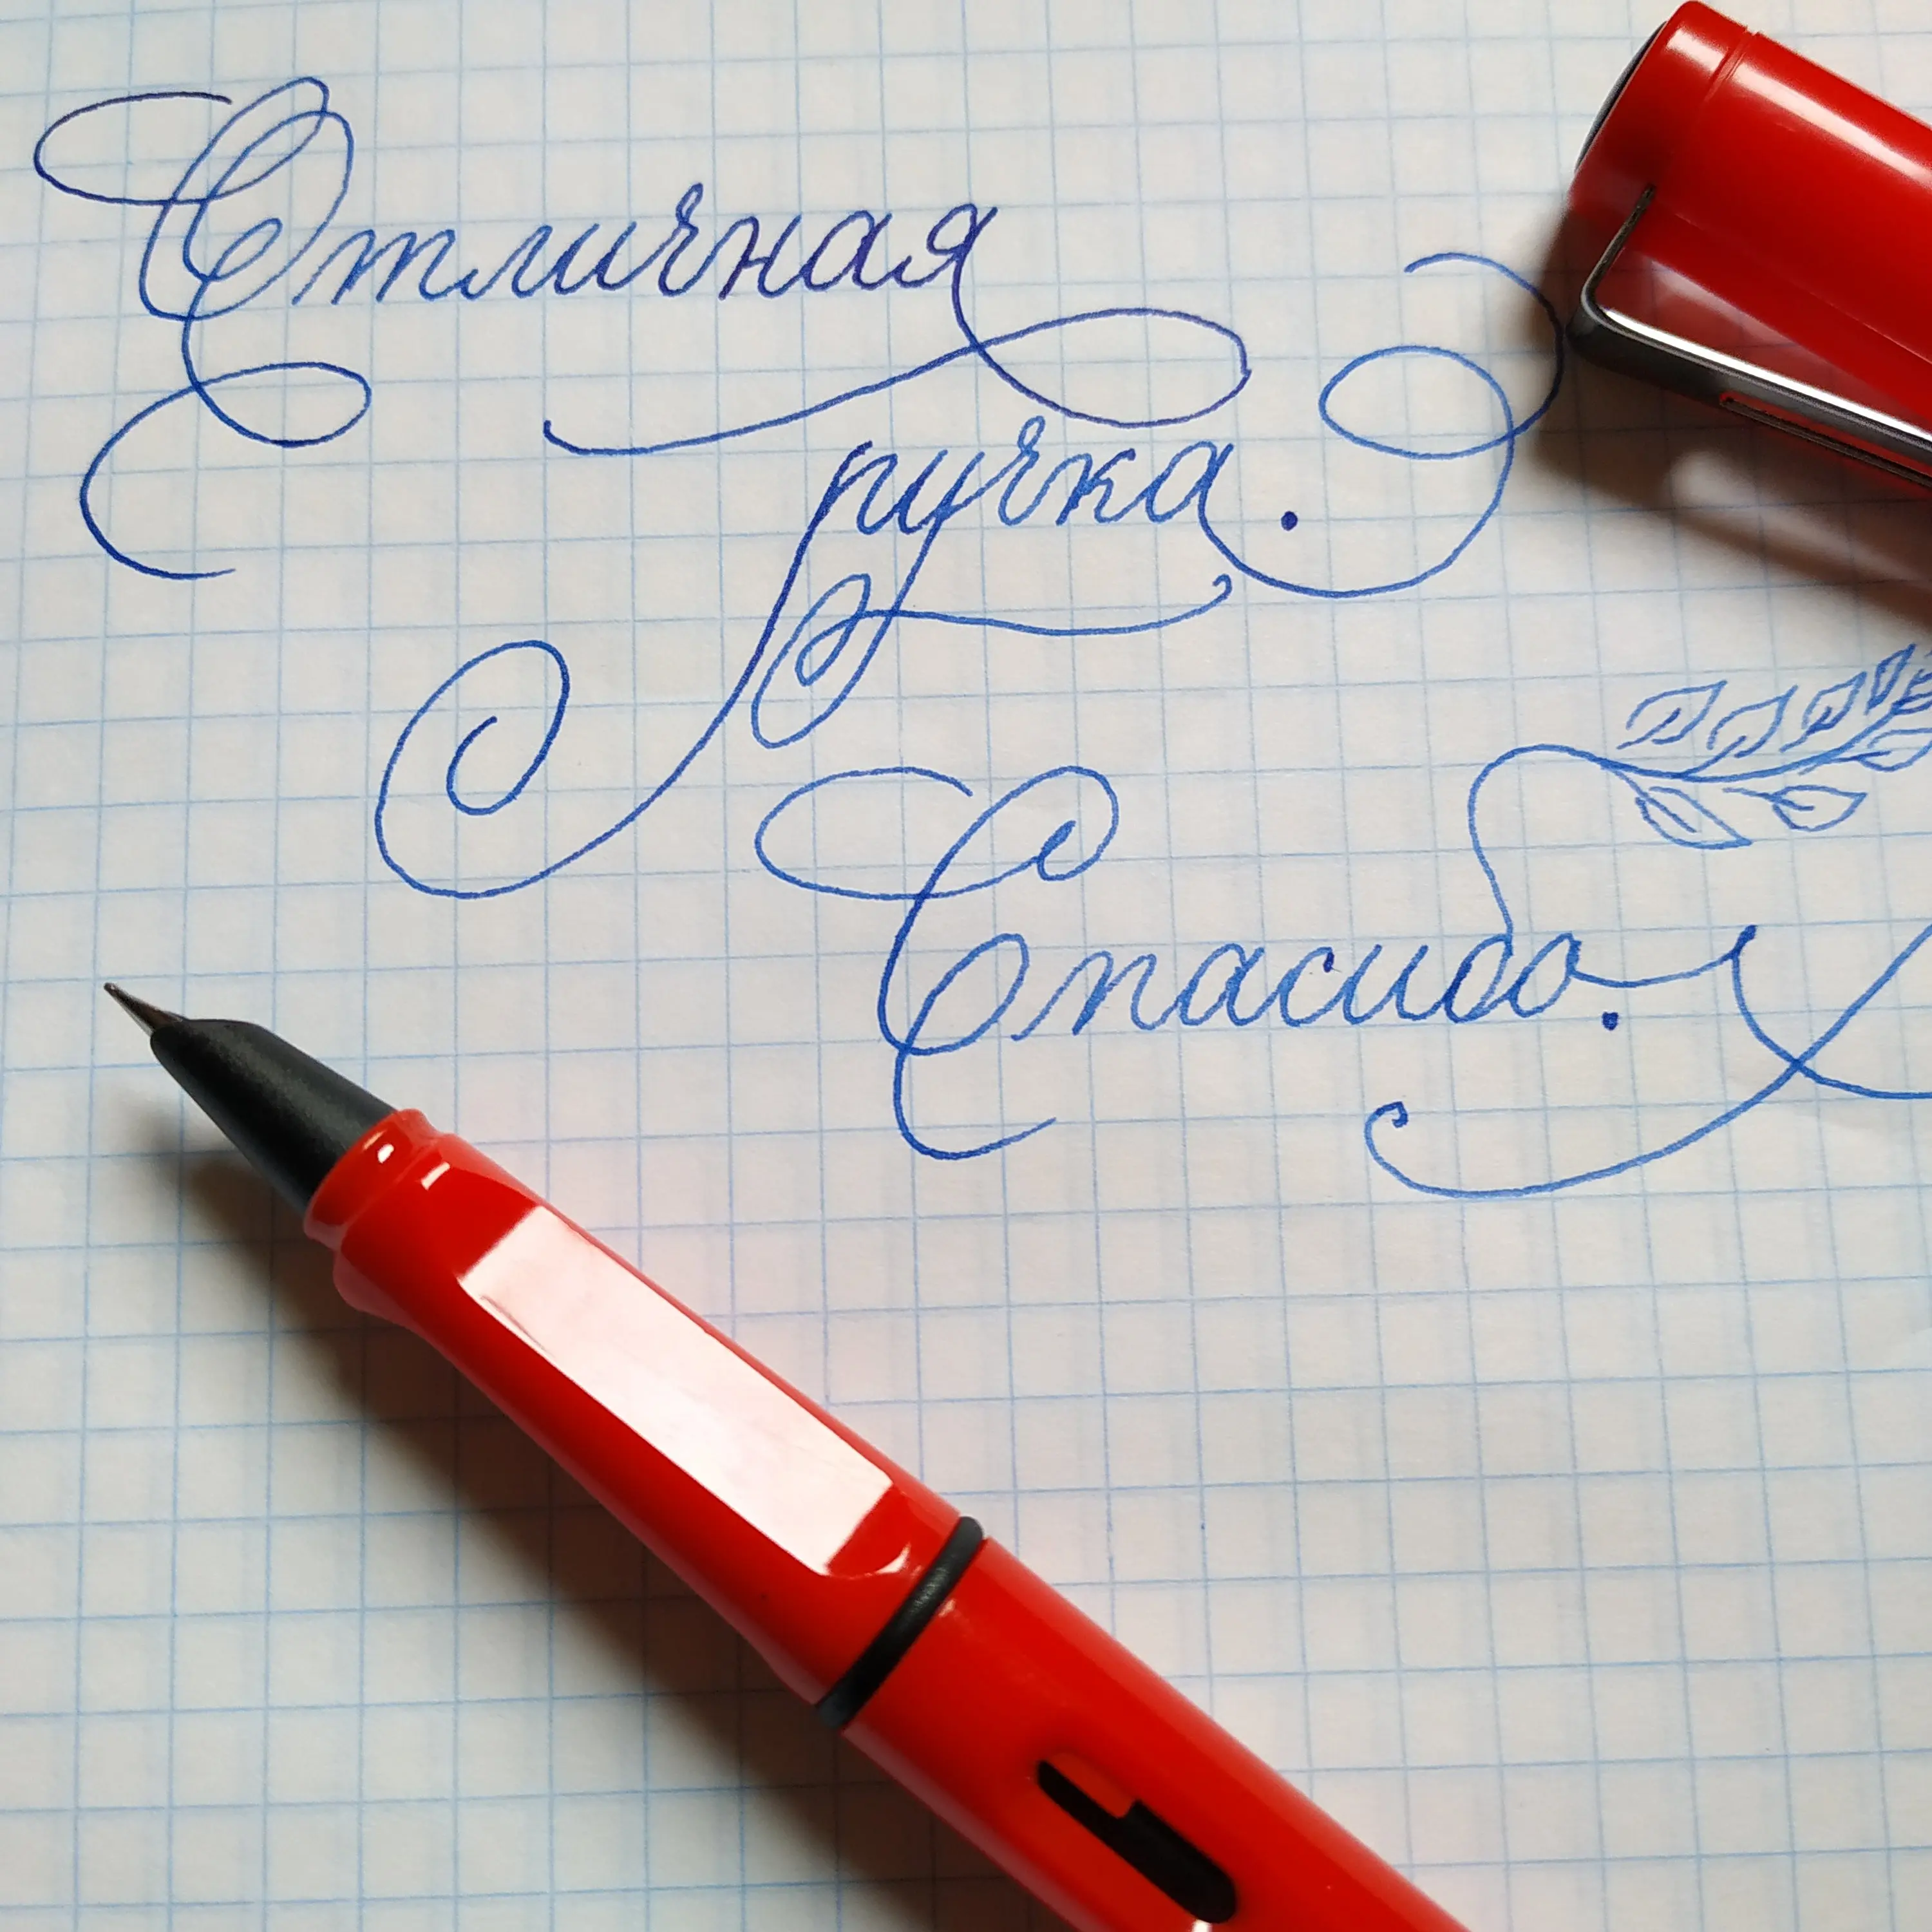 Отличная
ручка.
Спасибо.